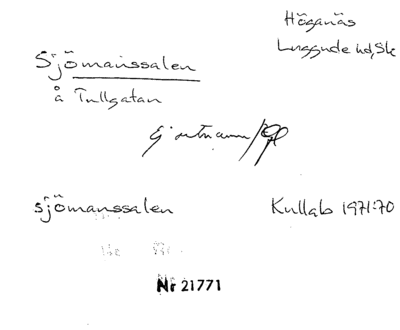 Höganäs
Luggude hd, Sk
Sjömanssalen
å Tullgatan
sjömanssalen
Kullab 1971:70
Nr 21771